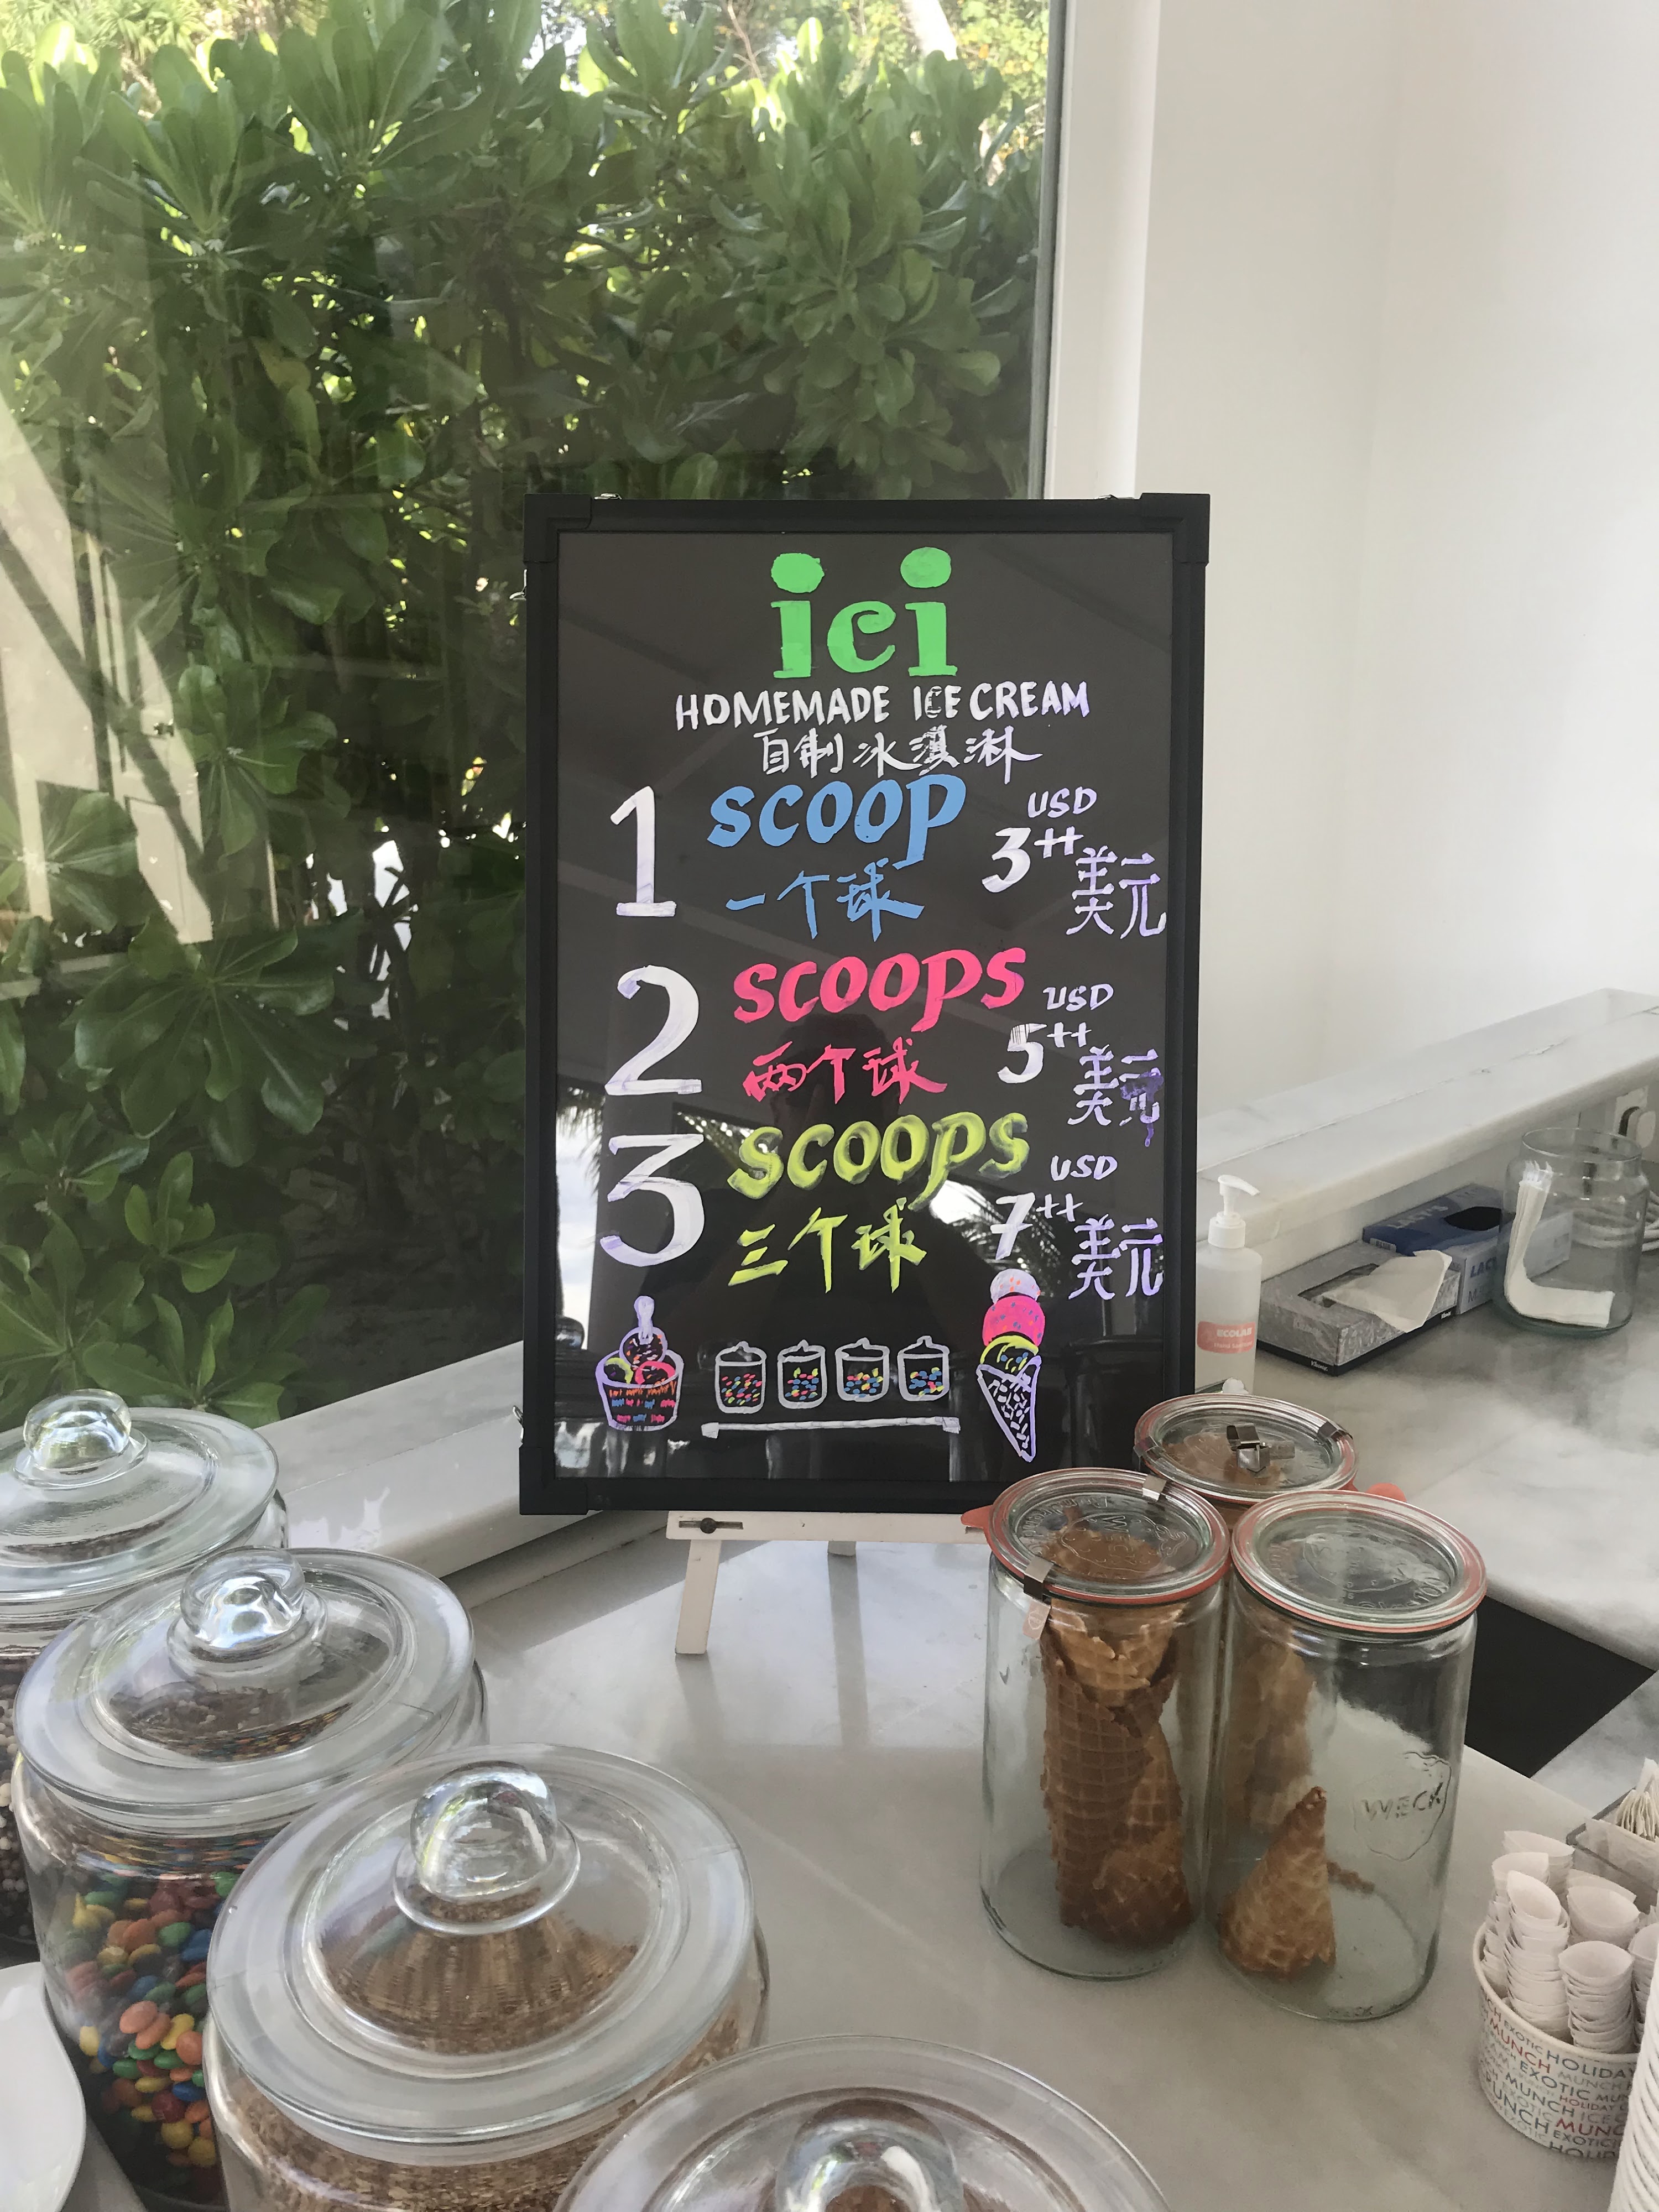 ici
HOMEMADE ICE CREAM
自制冰淇淋
1 scoop USD 3++
一个球 美元
2 scoops USD 5++
两个球 美元
3 scoops USD 7++
三个球 美元
ECOLAB
WECK
HOLIDAY
EXOTIC
MUNCH